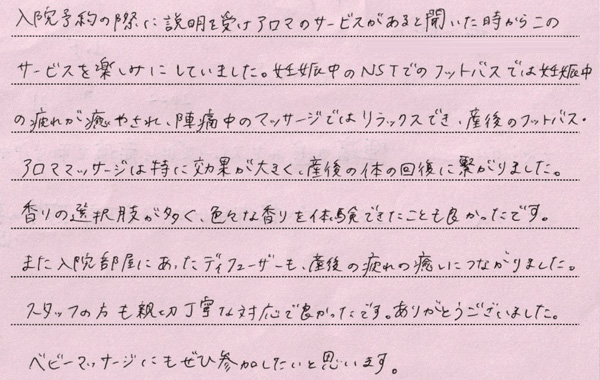 入院予約の際に説明を受けアロマのサービスがあると聞いた時からこの
サービスを楽しみにしていました。妊娠中のNSTでのフットバスでは妊娠中
の疲れが癒やされ、陣痛中のマッサージではリラックスでき、産後のフットバス・
アロママッサージは特に効果が大きく、産後の体の回復に繋がりました。
香りの選択肢が多く、色々な香りを体験できたことも良かったです。
また入院部屋にあったディフューザーも、産後の疲れの癒しにつながりました。
スタッフの方も親切丁寧な対応で良かったです。ありがとうございました。
ベビーマッサージにもぜひ参加したいと思います。